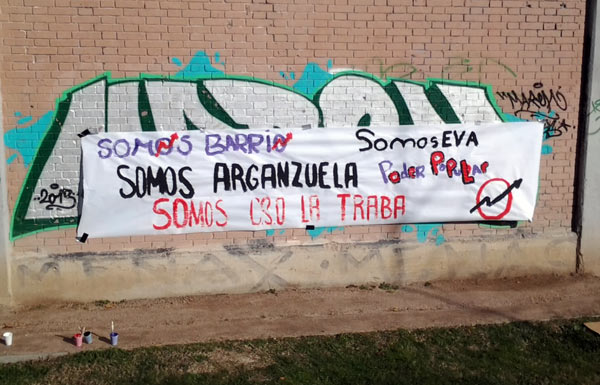 SOMOS BARRIO SomosEVA
SOMOS ARGANZUELA PodER PoPuLar
SOMOS CSO LA TRABA
2013